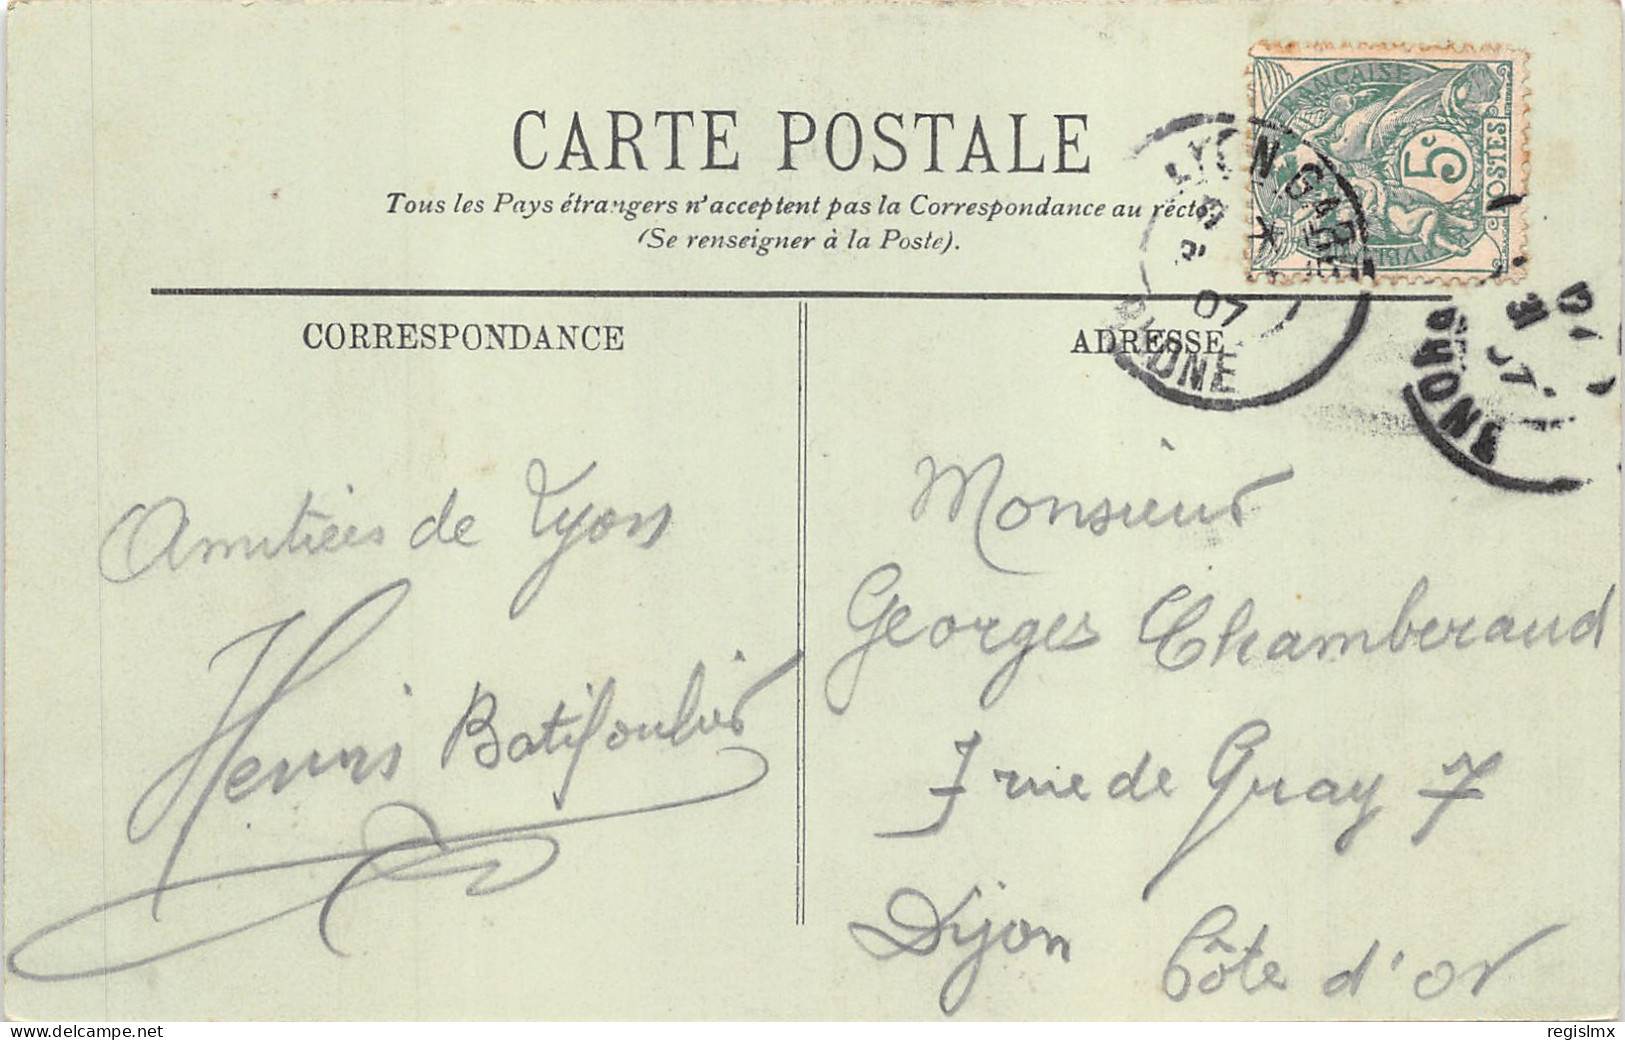 CARTE POSTALE
Tous les Pays étrangers n'acceptent pas la Correspondance au recto
(Se renseigner à la Poste).
FRANÇAISE
5c
POSTES
LYON GARE
07
RHONE
RHONE
07
CORRESPONDANCE
ADRESSE
Amitiées de Lyon
Henri Batifoulier
Monsieur
Georges Chamberaud
7 rue de Gray 7
Dijon Côte d'or
delcampe.net
regislmx